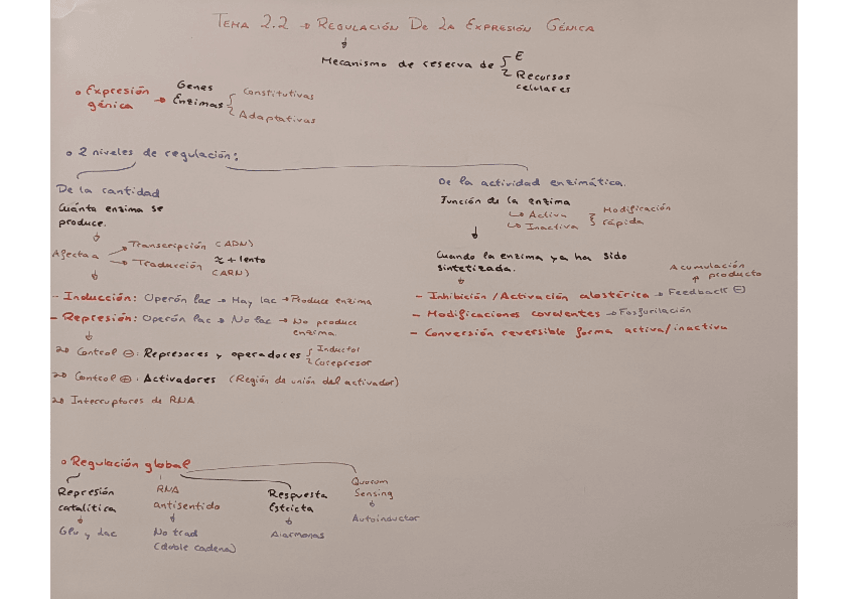 TEMA 2.2 → REGULACIÓN DE LA EXPRESIÓN GÉNICA
Mecanismo de reserva de { E
Recursos
celulares
• Expresión
génica → Genes
Enzimas { Constitutivas
Adaptativas
• 2 niveles de regulación:
De la cantidad
Cuánta enzima se
produce.
Afecta a → Transcripción (ADN)
→ Traducción ≈ + lento
(ARN)
- Inducción: Operón lac → Hay lac → Produce enzima
- Represión: Operón lac → No lac → No produce
enzima
Control ⊖: Represores y operadores { Inductor
Correpresor
Control ⊕: Activadores (Región de unión del activador)
Interruptores de RNA
De la actividad enzimática.
Función de la enzima
↳ Activa
↳ Inactiva } Modificación
rápida
Cuando la enzima ya ha sido
sintetizada.
Acumulación
producto
- Inhibición/Activación alostérica → Feedback ⊖
- Modificaciones covalentes → Fosforilación
- Conversión reversible forma activa/inactiva
• Regulación global
Represión
catalítica
Glu y lac
RNA
antisentido
No trad
(doble cadena)
Respuesta
Estricta
Alarmonas
Quorum
Sensing
Autoinductor